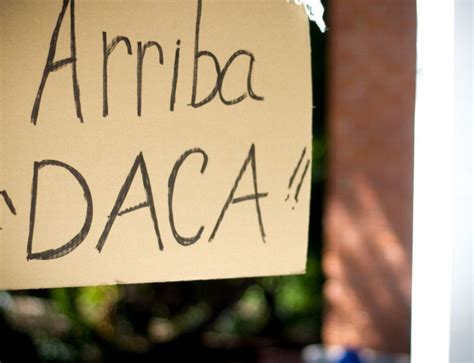 Arriba
DACA!!